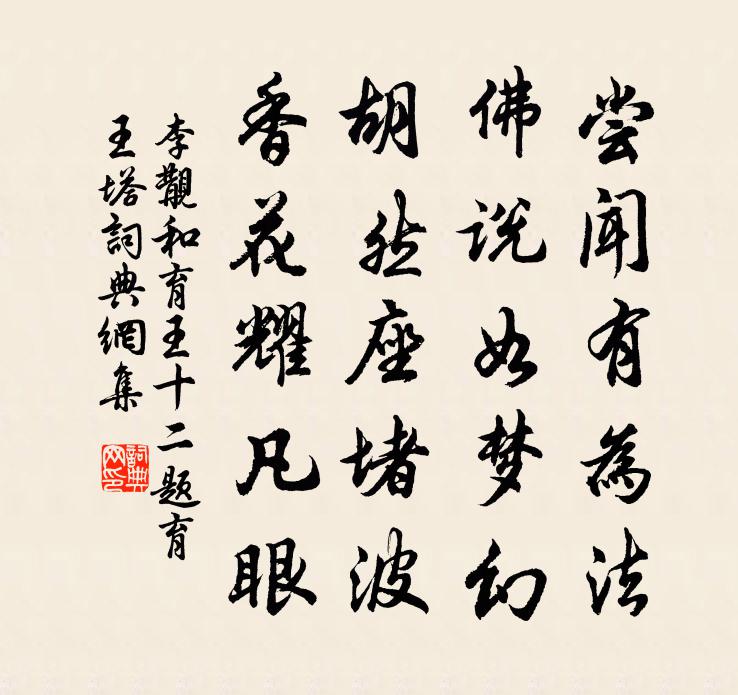 尝闻有為法
佛说如梦幻
胡然座堵波
香花耀凡眼
李觏和育王十二题育
王塔詞典網集
詞典网印